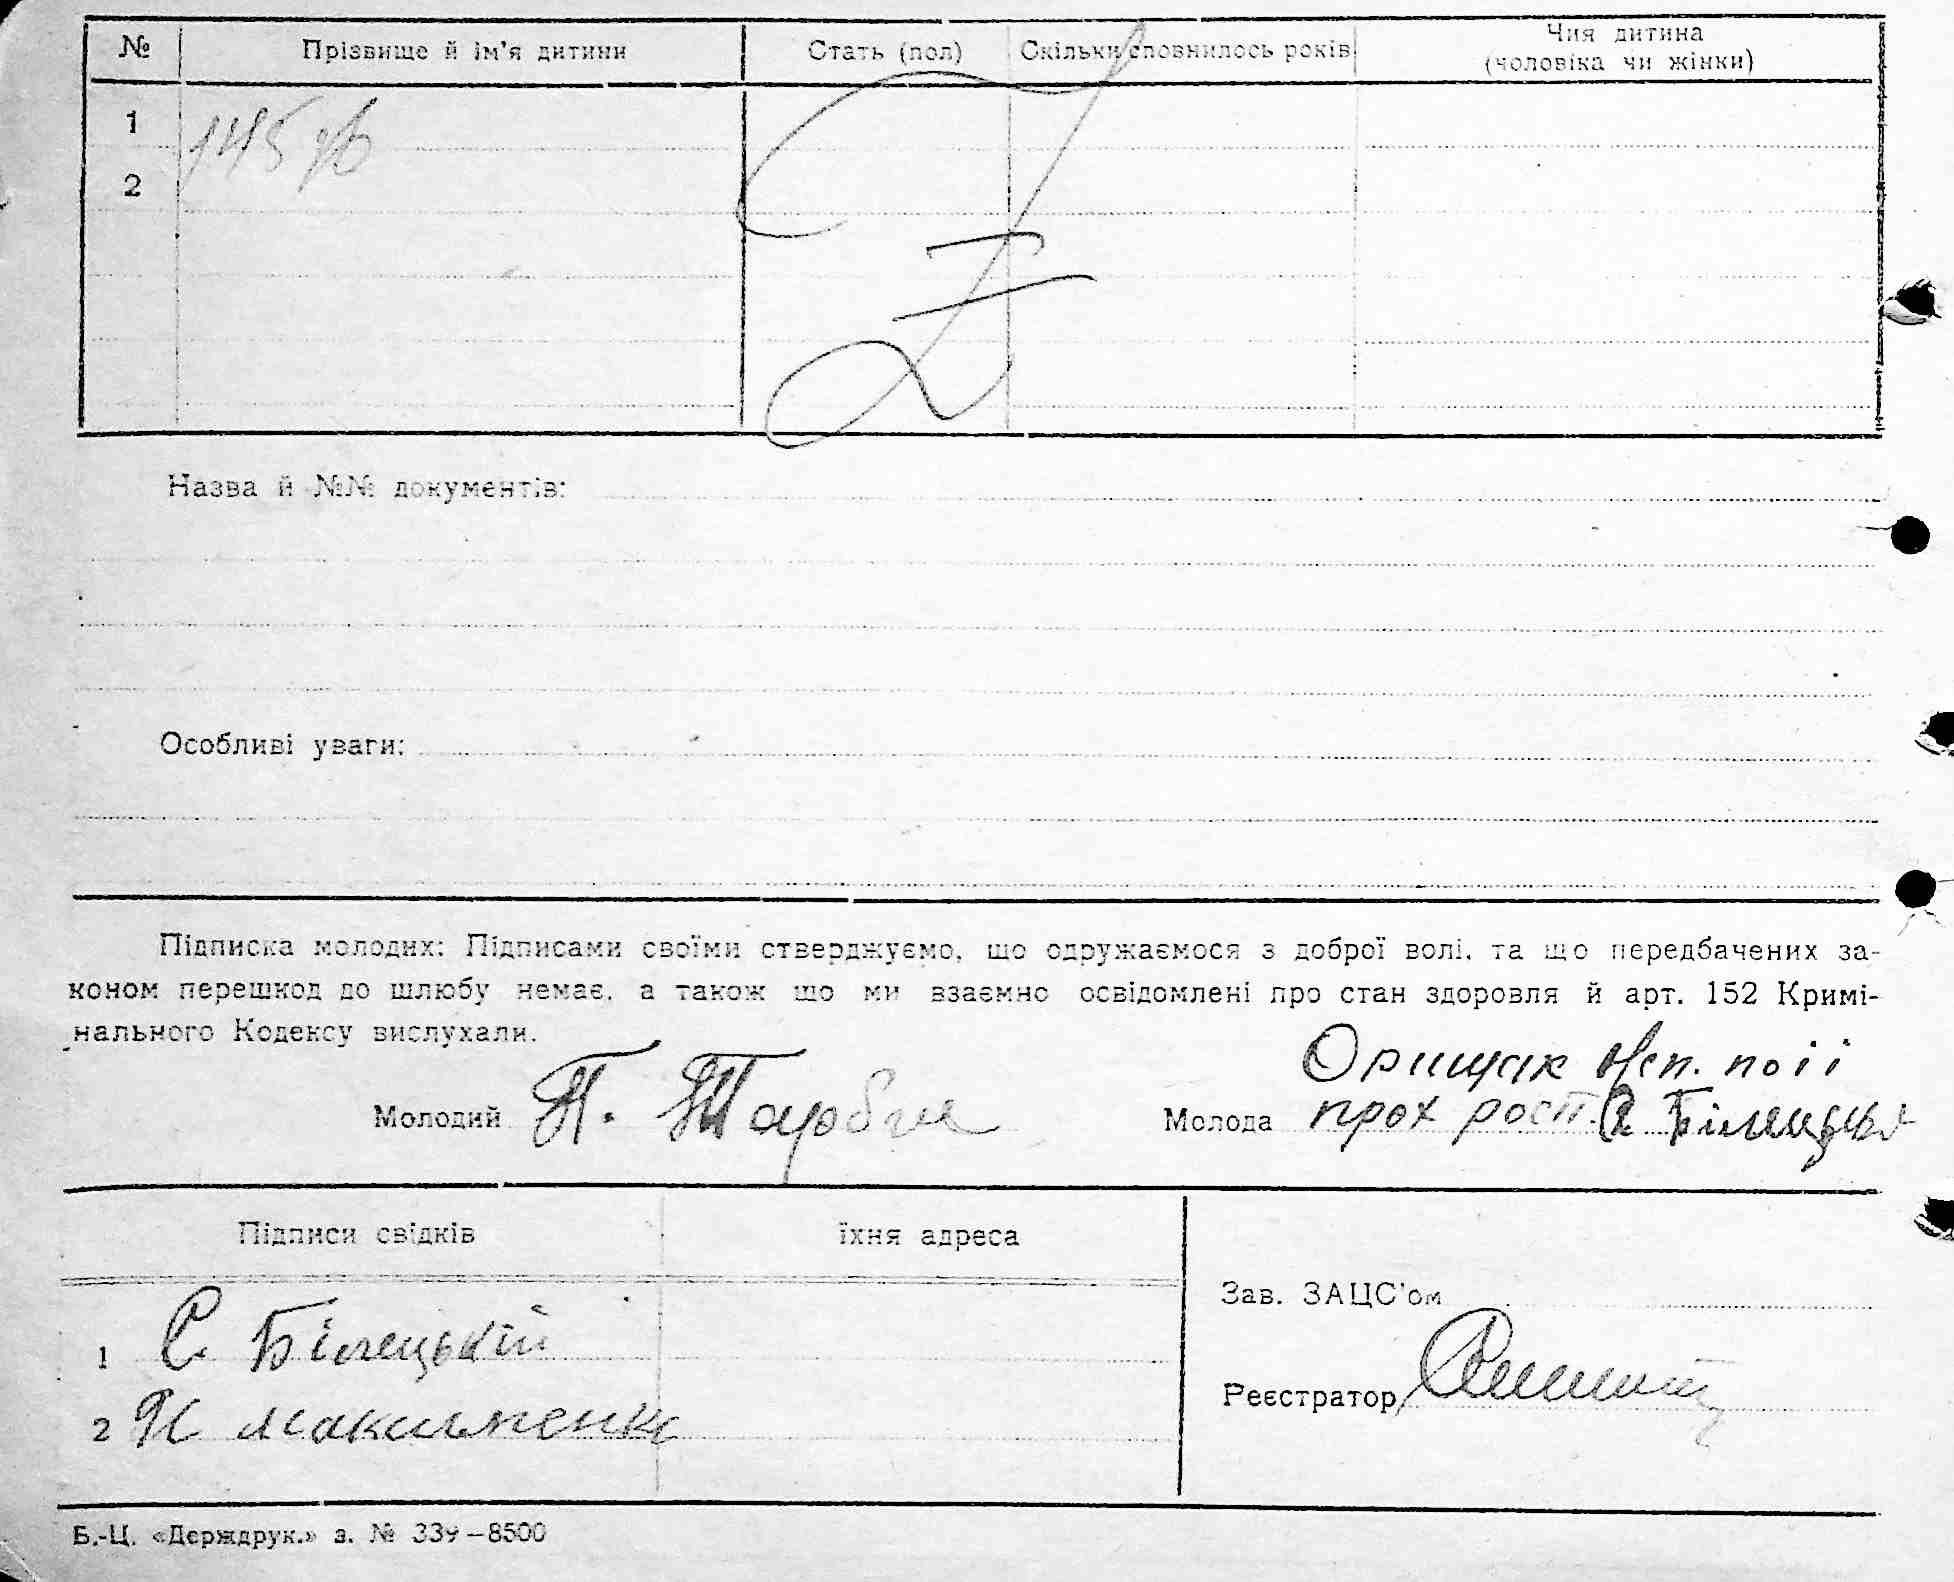 № Прізвище й ім'я дитини Стать (пол) Скільки сповнилось років Чия дитина
(чоловіка чи жінки)
1
2
Назва й №№ документів:
Особливі уваги:
Підписка молодих: Підписами своїми стверджуємо, що одружаємося з доброї волі, та що передбачених за-
коном перешкод до шлюбу немає, а також що ми взаємно освідомлені про стан здоровля й арт. 152 Кримі-
нального Кодексу вислухали.
Орищак неп. по її
Молодий П. Молода прох рост. Білецький
Підписи свідків їхня адреса
Зав. ЗАЦС'ом
1 С. Білецький
Реєстратор
2 Н Максименко
Б.-Ц. «Держдрук.» з. № 339—8500